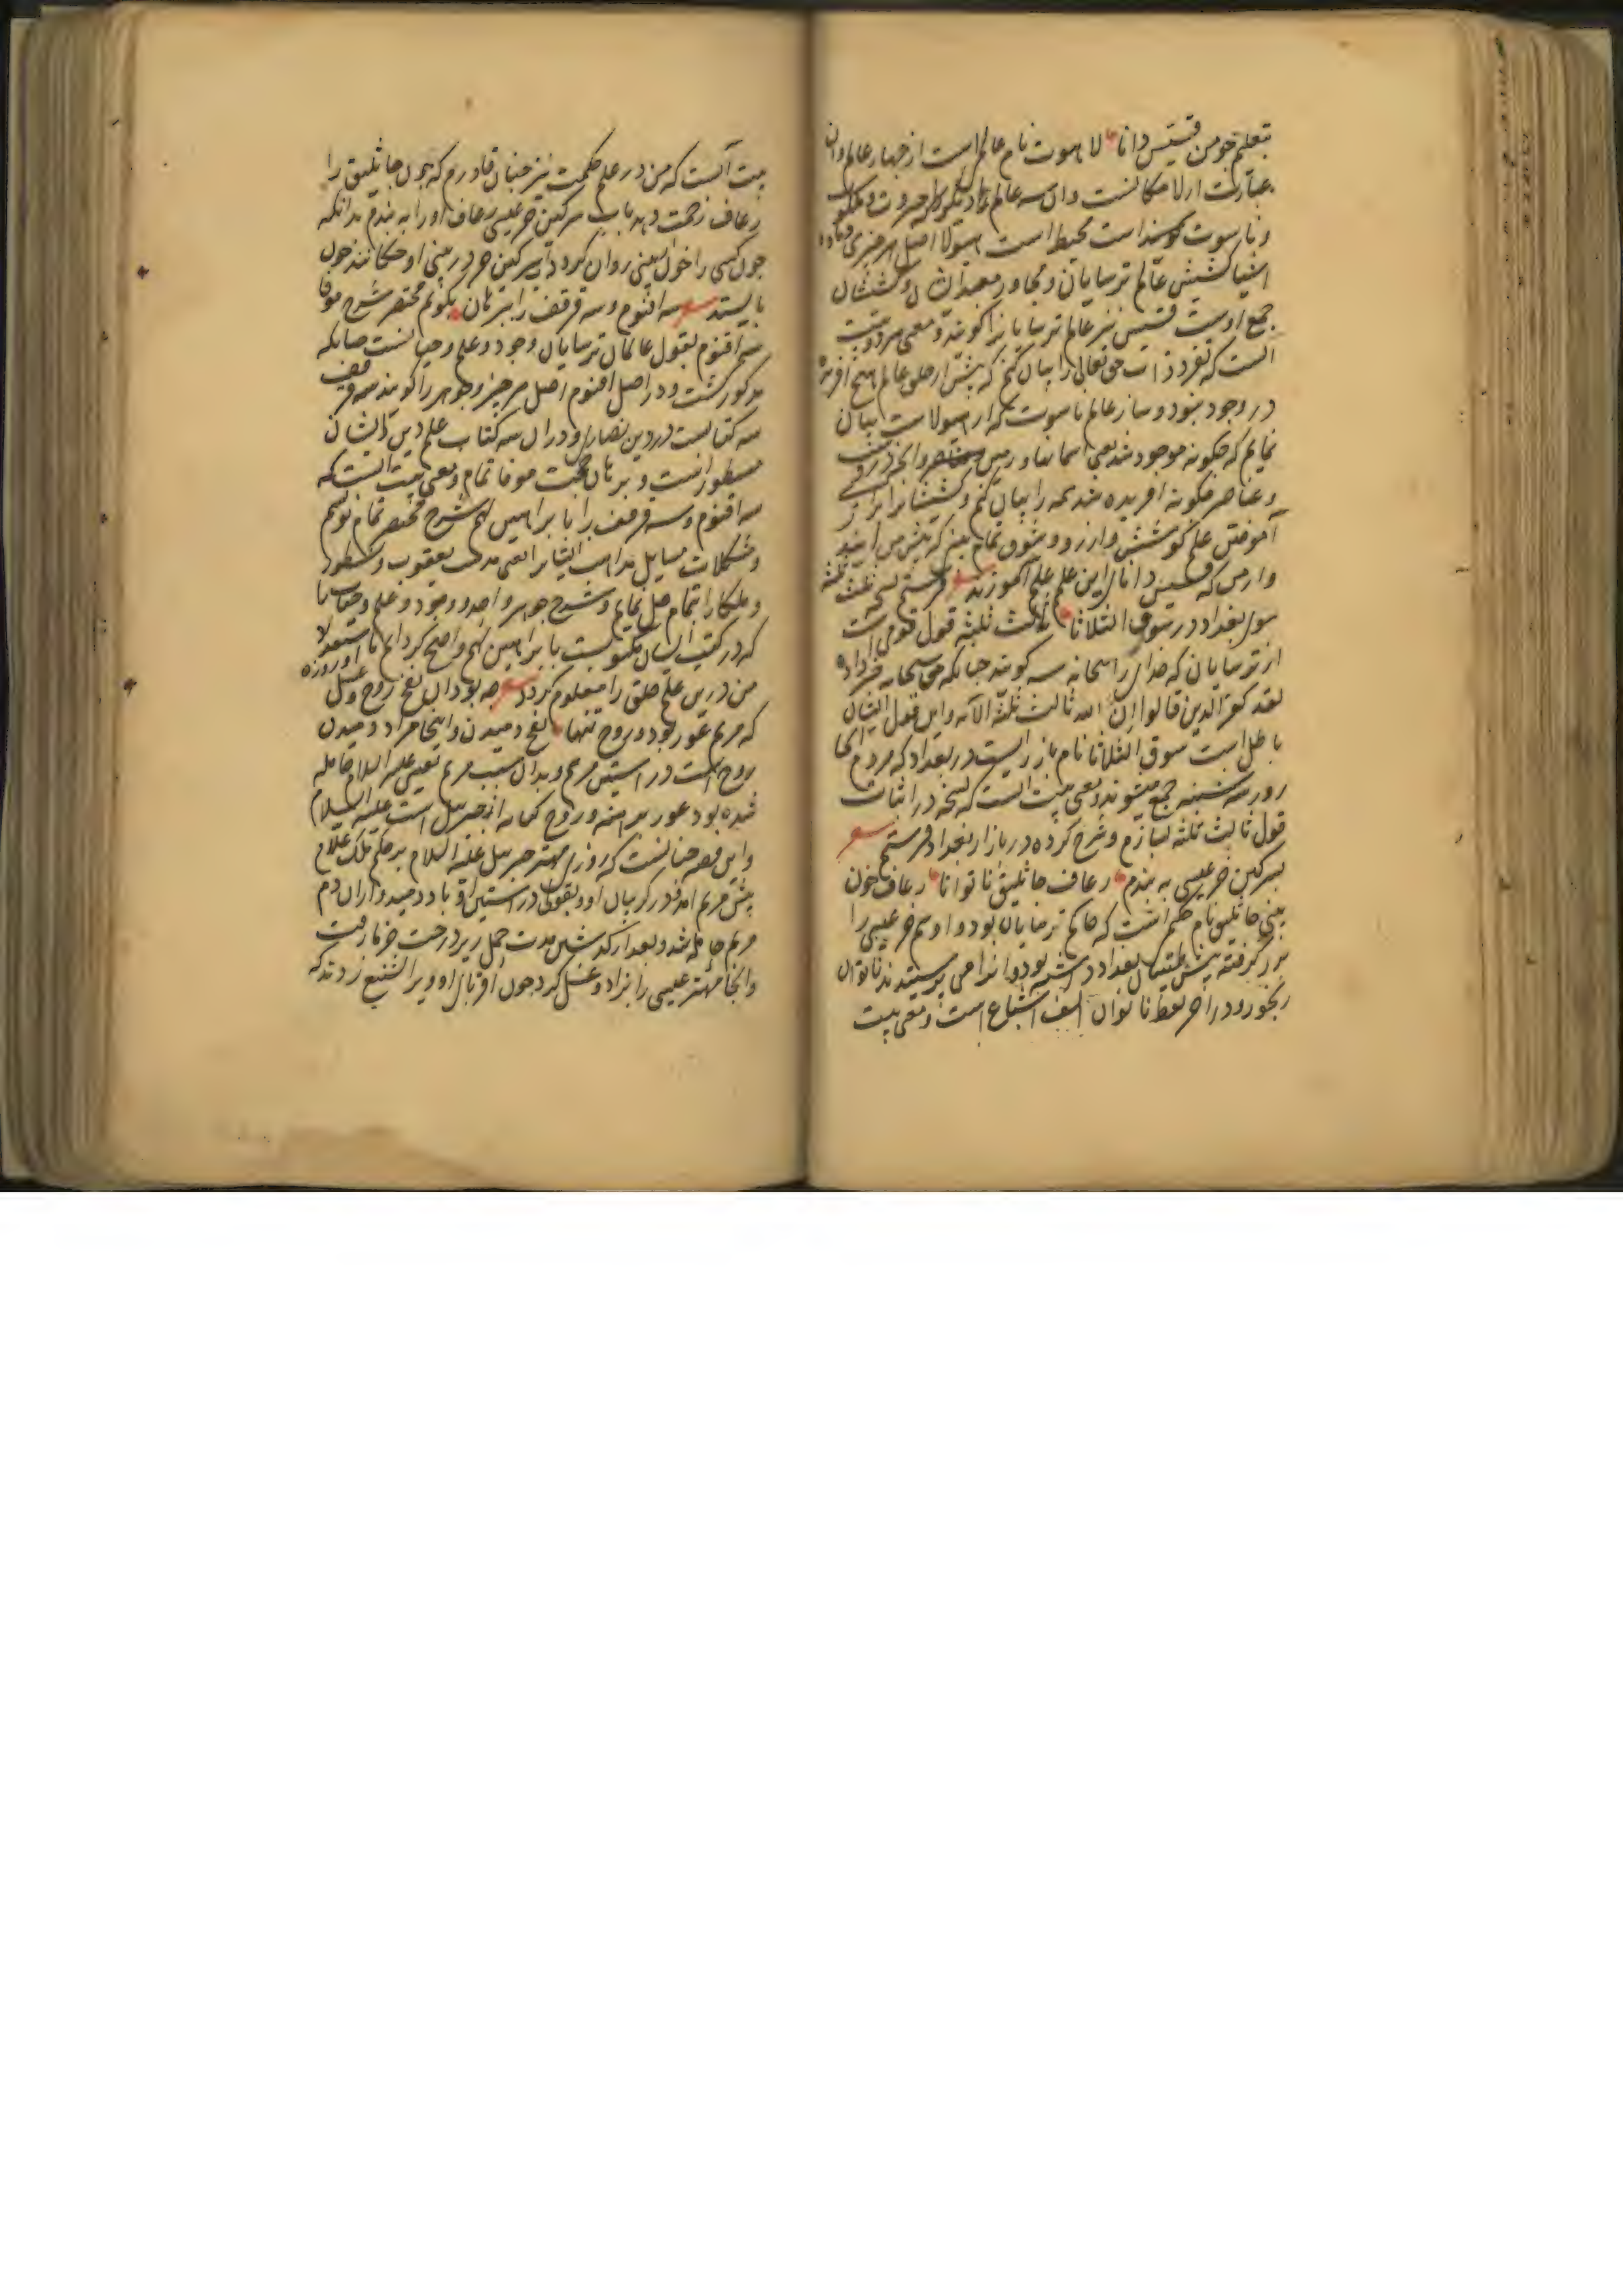 بتعلیم جو من قسیس دانا لاهوت نام عالم است از چهار عالم و آن
عبارت از لامکانست و آن سه عالم دیگر جبروت و ملکوت
و ناسوت است محیط است هیولا اصل هر چیزی
کشیش عالم ترسایان و مجاور معبد ایشان و کشیشان
جمع اوست قسیس نیز عالم ترسایانرا گویند و معنی هر دو بیت
آنست که تفرد ذات حق تعالی را بیان کنم که پیش از خلق عالم هیچ آفریده
در وجود نبود و ساز عالم ناسوت که از هیولاست بیان
نمایم که چگونه موجود شد یعنی آسمانها و زمین و آنچه دروست
و عناصر چگونه آفریده شد همه را بیان کنم و کشیشانرا از
آموختن علم کوشش و آرزو و شوق تمام که پیش من آیند
و از من که قسیس دانا این علم آموزند فرستم نسخه ثالث ثلثه
سوی بغداد در سوق الثلاثا ثالث ثلثه قول قومی است
از ترسایان که خدای را سبحانه سه گویند چنانکه حق سبحانه خبر داده
لقد کفر الذین قالوا إن الله ثالث ثلثة الآیه و این قول ایشان
باطل است سوق الثلاثا نام بازاریست در بغداد که مردم آنجا
روز سه شنبه جمع میشوند و معنی بیت آنست که نسخه در اثبات
قول ثالث ثلثه بسازم و شرح کرده در بازار بغداد فرستم
بسرگین خر عیسی به بندم رعاف جاثلیق ناتوانا رعاف خون
بینی جاثلیق نام حکیم است که حاکم ترسایان بود و او سم خر عیسی را
در زر گرفته پیش بغداد داشته بود و آنرا می پرستیدند ناتوان
رنجور و در آخر لفظ ناتوان الف اشباع است و معنی بیت
بیت آنست که من در علم حکمت نیز چنان قادرم که چون جاثلیق را
رعاف زحمت دهد بآب سرگین خر عیسی رعاف او را به بندم بدانکه
چون کسی را خون بینی روان گردد آب سرگین خر در بینی او چکانند خون
بایستد سه اقنوم و سه قرقف را ببرهان بگویم مختصر شرح موفا
سه اقنوم بقول عالمان ترسایان وجود و علم و حیاتست چنانکه
مذکور گشت و در اصل اقنوم اصل هر چیز و جوهر را گویند سه قرقف
سه کتابست در دین نصاری و در آن سه کتاب علم دین ایشان
مسطور است و برهان حجت موفا تمام و معنی بیت آنست که
سه اقنوم و سه قرقف را با براهین شرح مختصر تمام نویسم
و مشکلات مسایل مذاهب ایشانرا یعنی مذهب یعقوب و نسطور
و ملکا را بتمام حل نمایم و شرح جوهر واحد و وجود و علم و حیات
که در کتب ایشان مکتوبست با براهین واضح گردانم تا استعداد
من درین علم خلق را معلوم گردد چه بود آن نفخ روح و غسل و روزه
که مریم عور بود و روح تنها نفخ دمیدن و اینجا مراد دمیدن
روح است در آستین مریم و بدان سبب مریم بعیسی علیه السلام حامله
شده بود عور برهنه و روح کنایه از جبریل است علیه السلام
و این قصه چنانست که روزی مهتر جبریل علیه السلام بر حکم ملک علام
پیش مریم آمد و در گریبان او و بقولی در آستین او باد دمید و از آن دم
مریم حامله شد و بعد از گذشتن مدت حمل زیر درخت خرما رفت
و آنجا مهتر عیسی را بزاد و غسل کرد چون اقربای او ویرا تشنیع زدند که